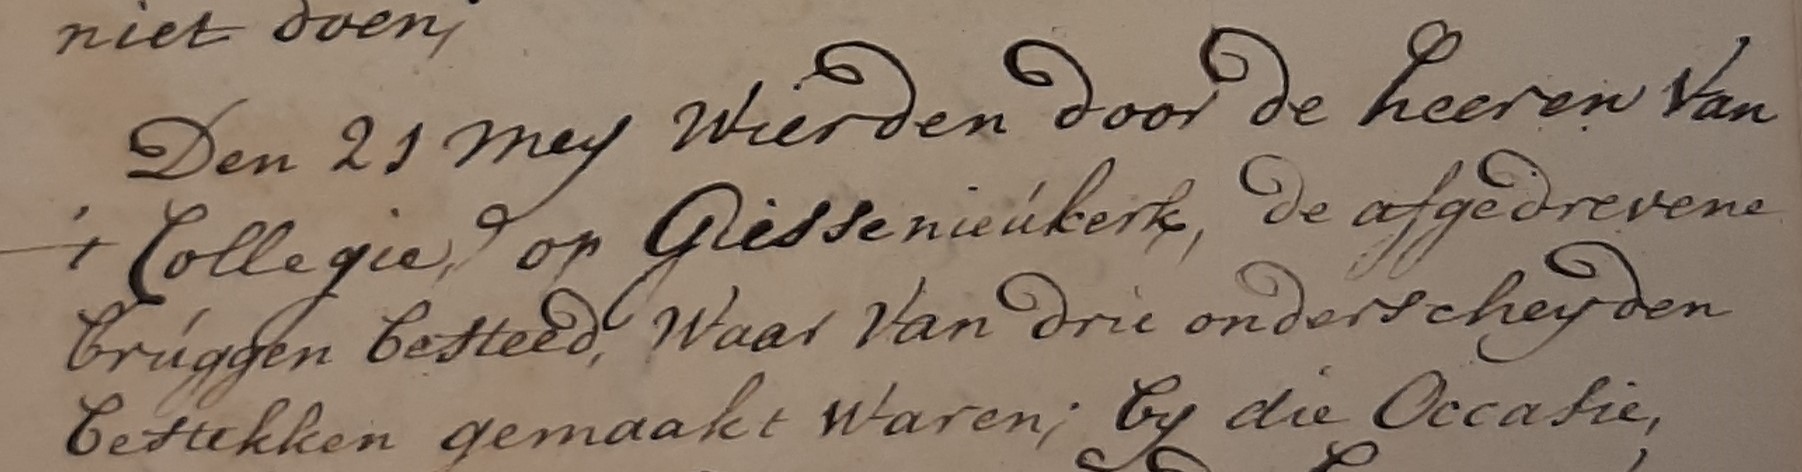 niet doen;
Den 21 Meij Wierden door de heeren Van
't Collegie, op Giessenieúkerk, de afgedrevene
brúggen besteed, Waar Van drie onderscheijden
bestekken gemaakt Waren; bij die Occasie,